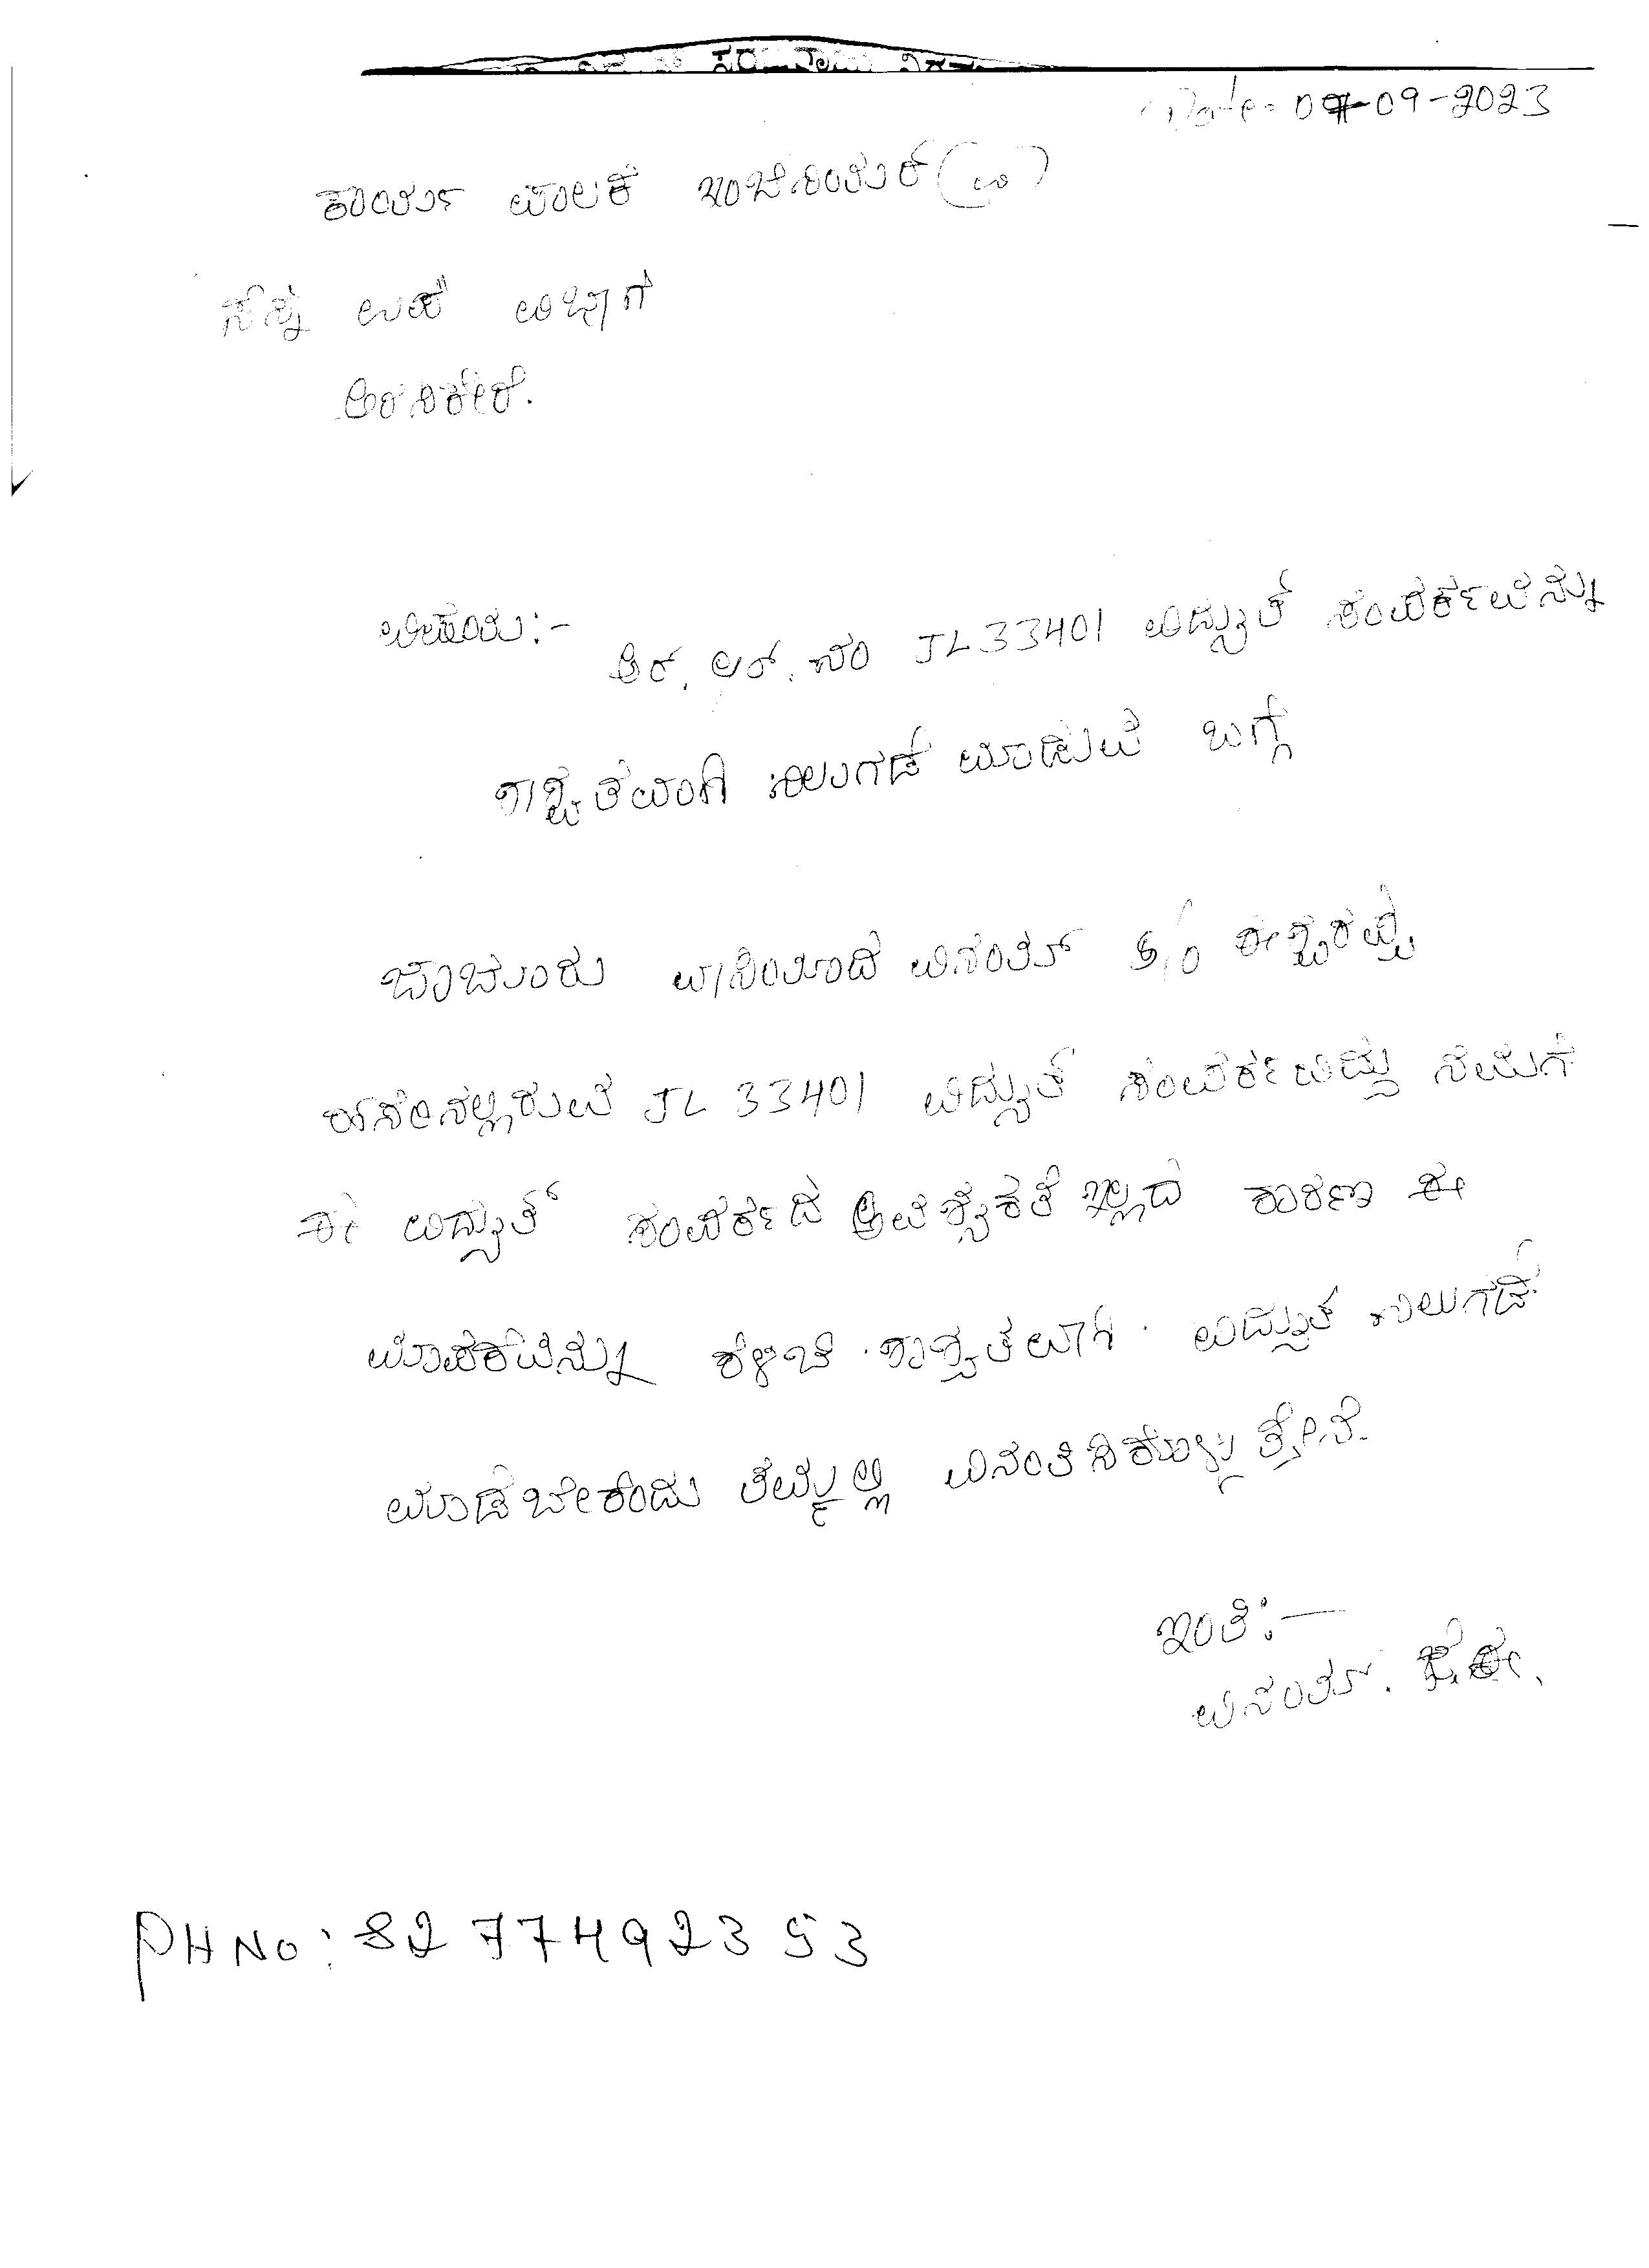 Date = 07-09-2023
ಕಾರ್ಯ ಪಾಲಕ ಇಂಜಿನಿಯರ್ (ವಿ)
ಉಪ ವಿಭಾಗ
ಅರಸಿಕೇರೆ.
ವಿಷಯ:-
ಆರ್. ಆರ್. ನಂ JL33401 ವಿದ್ಯುತ್ ಸಂಪರ್ಕವನ್ನು
ಶಾಶ್ವತವಾಗಿ ನಿಲುಗಡೆ ಮಾಡುವ ಬಗ್ಗೆ
ಜಾಜೂರು ವಾಸಿಯಾದ ವಸಂತ್ S/o ಈಶ್ವರಪ್ಪ
ಹೆಸರಿನಲ್ಲಿರುವ JL 33401 ವಿದ್ಯುತ್ ಸಂಪರ್ಕವಿದ್ದು ನಮಗೆ
ಈ ವಿದ್ಯುತ್ ಸಂಪರ್ಕದ ಅವಶ್ಯಕತೆ ಇಲ್ಲದ ಕಾರಣ ಈ
ಮಾಪಕವನ್ನು ಕಳಚಿ ಶಾಶ್ವತವಾಗಿ ವಿದ್ಯುತ್ ನಿಲುಗಡೆ
ಮಾಡಬೇಕೆಂದು ತಮ್ಮಲ್ಲಿ ವಿನಂತಿಸಿಕೊಳ್ಳುತ್ತೇನೆ.
ಇಂತಿ:-
ವಸಂತ್. ಜೆ.ಈ.
PH NO: 8277492353